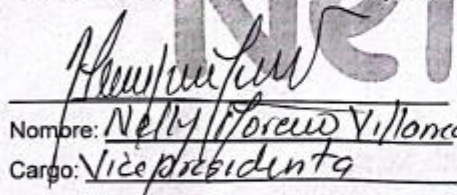 Nel
Nombre: Nelly Moreno Villane
Cargo: Vicepresidenta